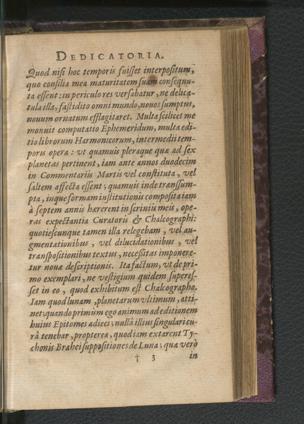 DEDICATORIA.
Quod nisi hoc temporis fuisset interpositum,
quo consilia mea maturitatem suam consequu-
ta essent: in periculo res versabatur, ne delica-
tula illa, fastidito omni mundo, novos sumptus,
novum ornatum efflagitaret. Multa scilicet me
monuit computatio Ephemeridum, multa edi-
tio librorum Harmonicorum, intermedii tem-
poris opera: ut quamvis pleraque quæ ad sex
planetas pertinent, iam ante annos duodecim
in Commentariis Martis vel constituta, vel
saltem affecta essent; quamvis inde transsum-
pta, inque formam institutionis composita iam
à septem annis hærerent in scriniis meis, ope-
ras expectantia Curatoris & Chalcographi:
quotiescunque tamen illa relegebam, vel au-
gmentationibus, vel dilucidationibus, vel
transpositionibus textus, necessitas imponere-
tur novæ descriptionis. Ita factum, ut de pri-
mo exemplari, ne vestigium quidem superes-
set in eo, quod exhibitum est Chalcographo.
Iam quod lunam, planetarum ultimum, atti-
net: quando primum ego animum ad editionem
huius Epitomes adieci; nullâ illius singulari cu-
râ tenebar, propterea, quod iam extarent Ty-
chonis Brahei suppositiones de Luna; quæ verò
† 3 in